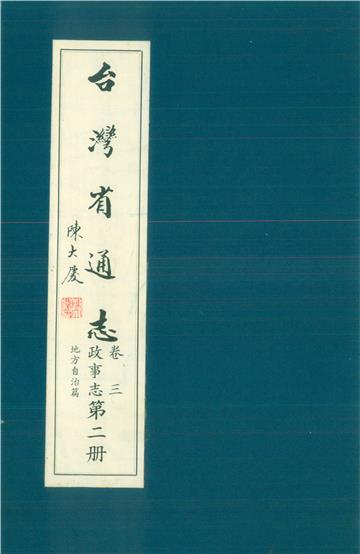 台灣省通志
陳大慶
卷三
政事志第二册
地方自治篇